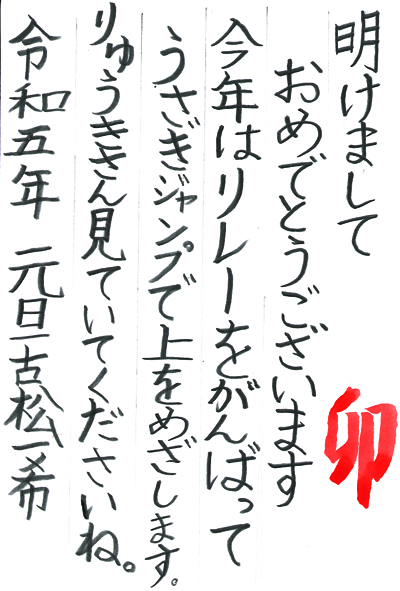 明けまして
おめでとうございます
今年はリレーをがんばって
うさぎジャンプで上をめざします。
りゅうきさん見ていてくださいね。
令和五年 元旦 古松一希
卯